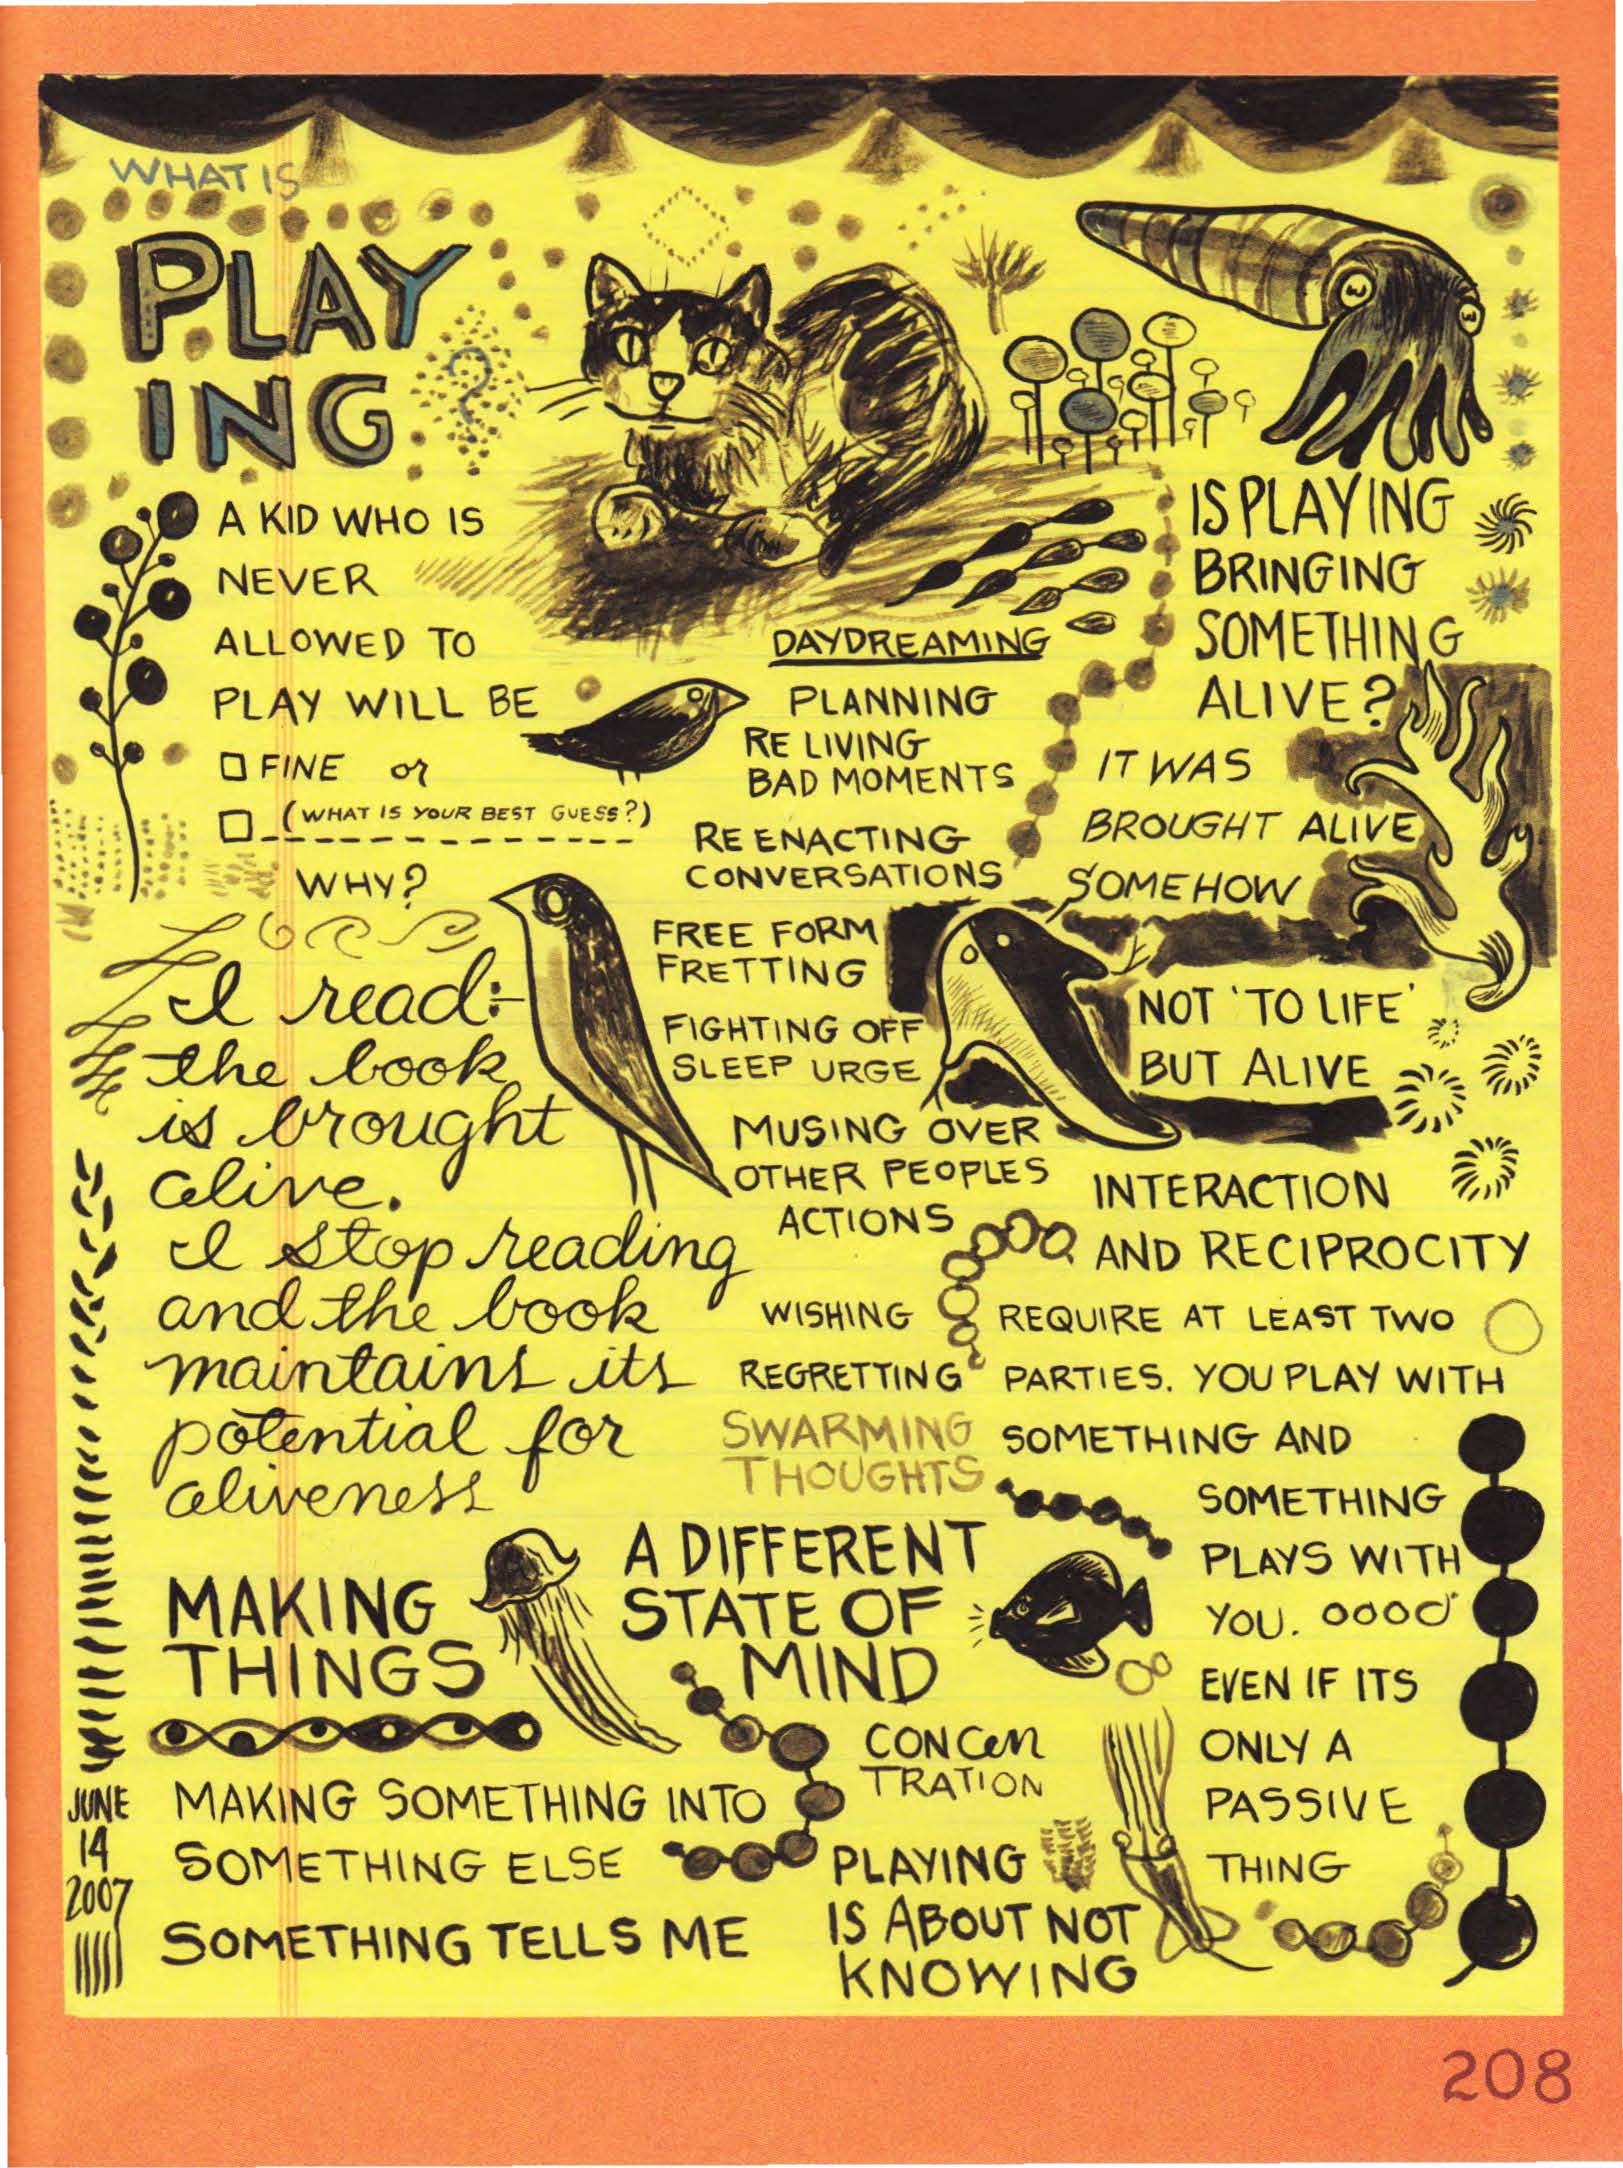 WHAT IS
PLAY
ING
?
A KID WHO IS
NEVER
ALLOWED TO
PLAY WILL BE
FINE or
(WHAT IS YOUR BEST GUESS?)
WHY?
I read:
the book
is brought
alive.
I stop reading
and the book
maintains its
potential for
aliveness
MAKING
THINGS
MAKING SOMETHING INTO
SOMETHING ELSE
SOMETHING TELLS ME
JUNE
14
2007
DAYDREAMING
PLANNING
RE LIVING
BAD MOMENTS
RE ENACTING
CONVERSATIONS
FREE FORM
FRETTING
FIGHTING OFF
SLEEP URGE
MUSING OVER
OTHER PEOPLES
ACTIONS
WISHING
REGRETTING
SWARMING
THOUGHTS
A DIFFERENT
STATE OF
MIND
CONCEN
TRATION
PLAYING
IS ABOUT NOT
KNOWING
IS PLAYING
BRINGING
SOMETHING
ALIVE?
IT WAS
BROUGHT ALIVE
SOMEHOW
NOT 'TO LIFE'
BUT ALIVE
INTERACTION
AND RECIPROCITY
REQUIRE AT LEAST TWO
PARTIES. YOU PLAY WITH
SOMETHING AND
SOMETHING
PLAYS WITH
YOU. oooo
EVEN IF ITS
ONLY A
PASSIVE
THING
208